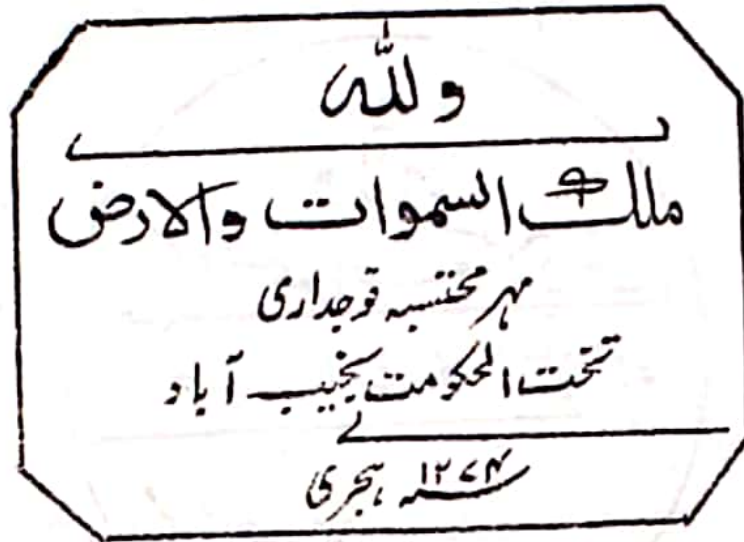 وللہ
ملک السموات والارض
مہر محتسبہ فوجداری
تحت الحکومت نجیب آباد
سنہ ۱۲۷۴ ہجری